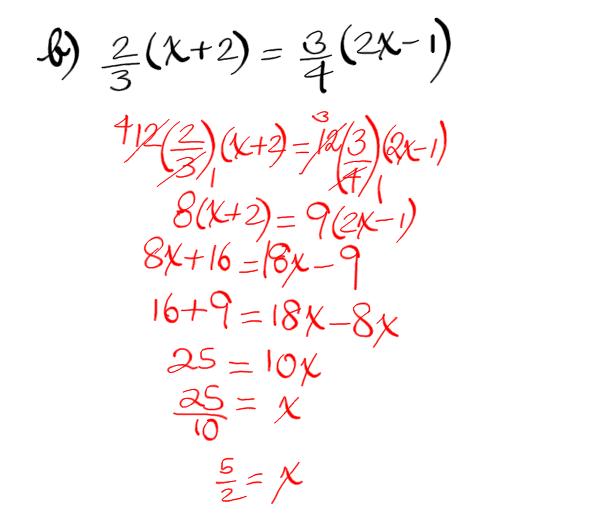 b) 2/3 (x+2) = 3/4 (2x-1)
4 12(2/3) 1 (x+2) = 3 12(3/4) 1 (2x-1)
8(x+2) = 9(2x-1)
8x+16 = 18x-9
16+9 = 18x-8x
25 = 10x
25/10 = x
5/2 = x